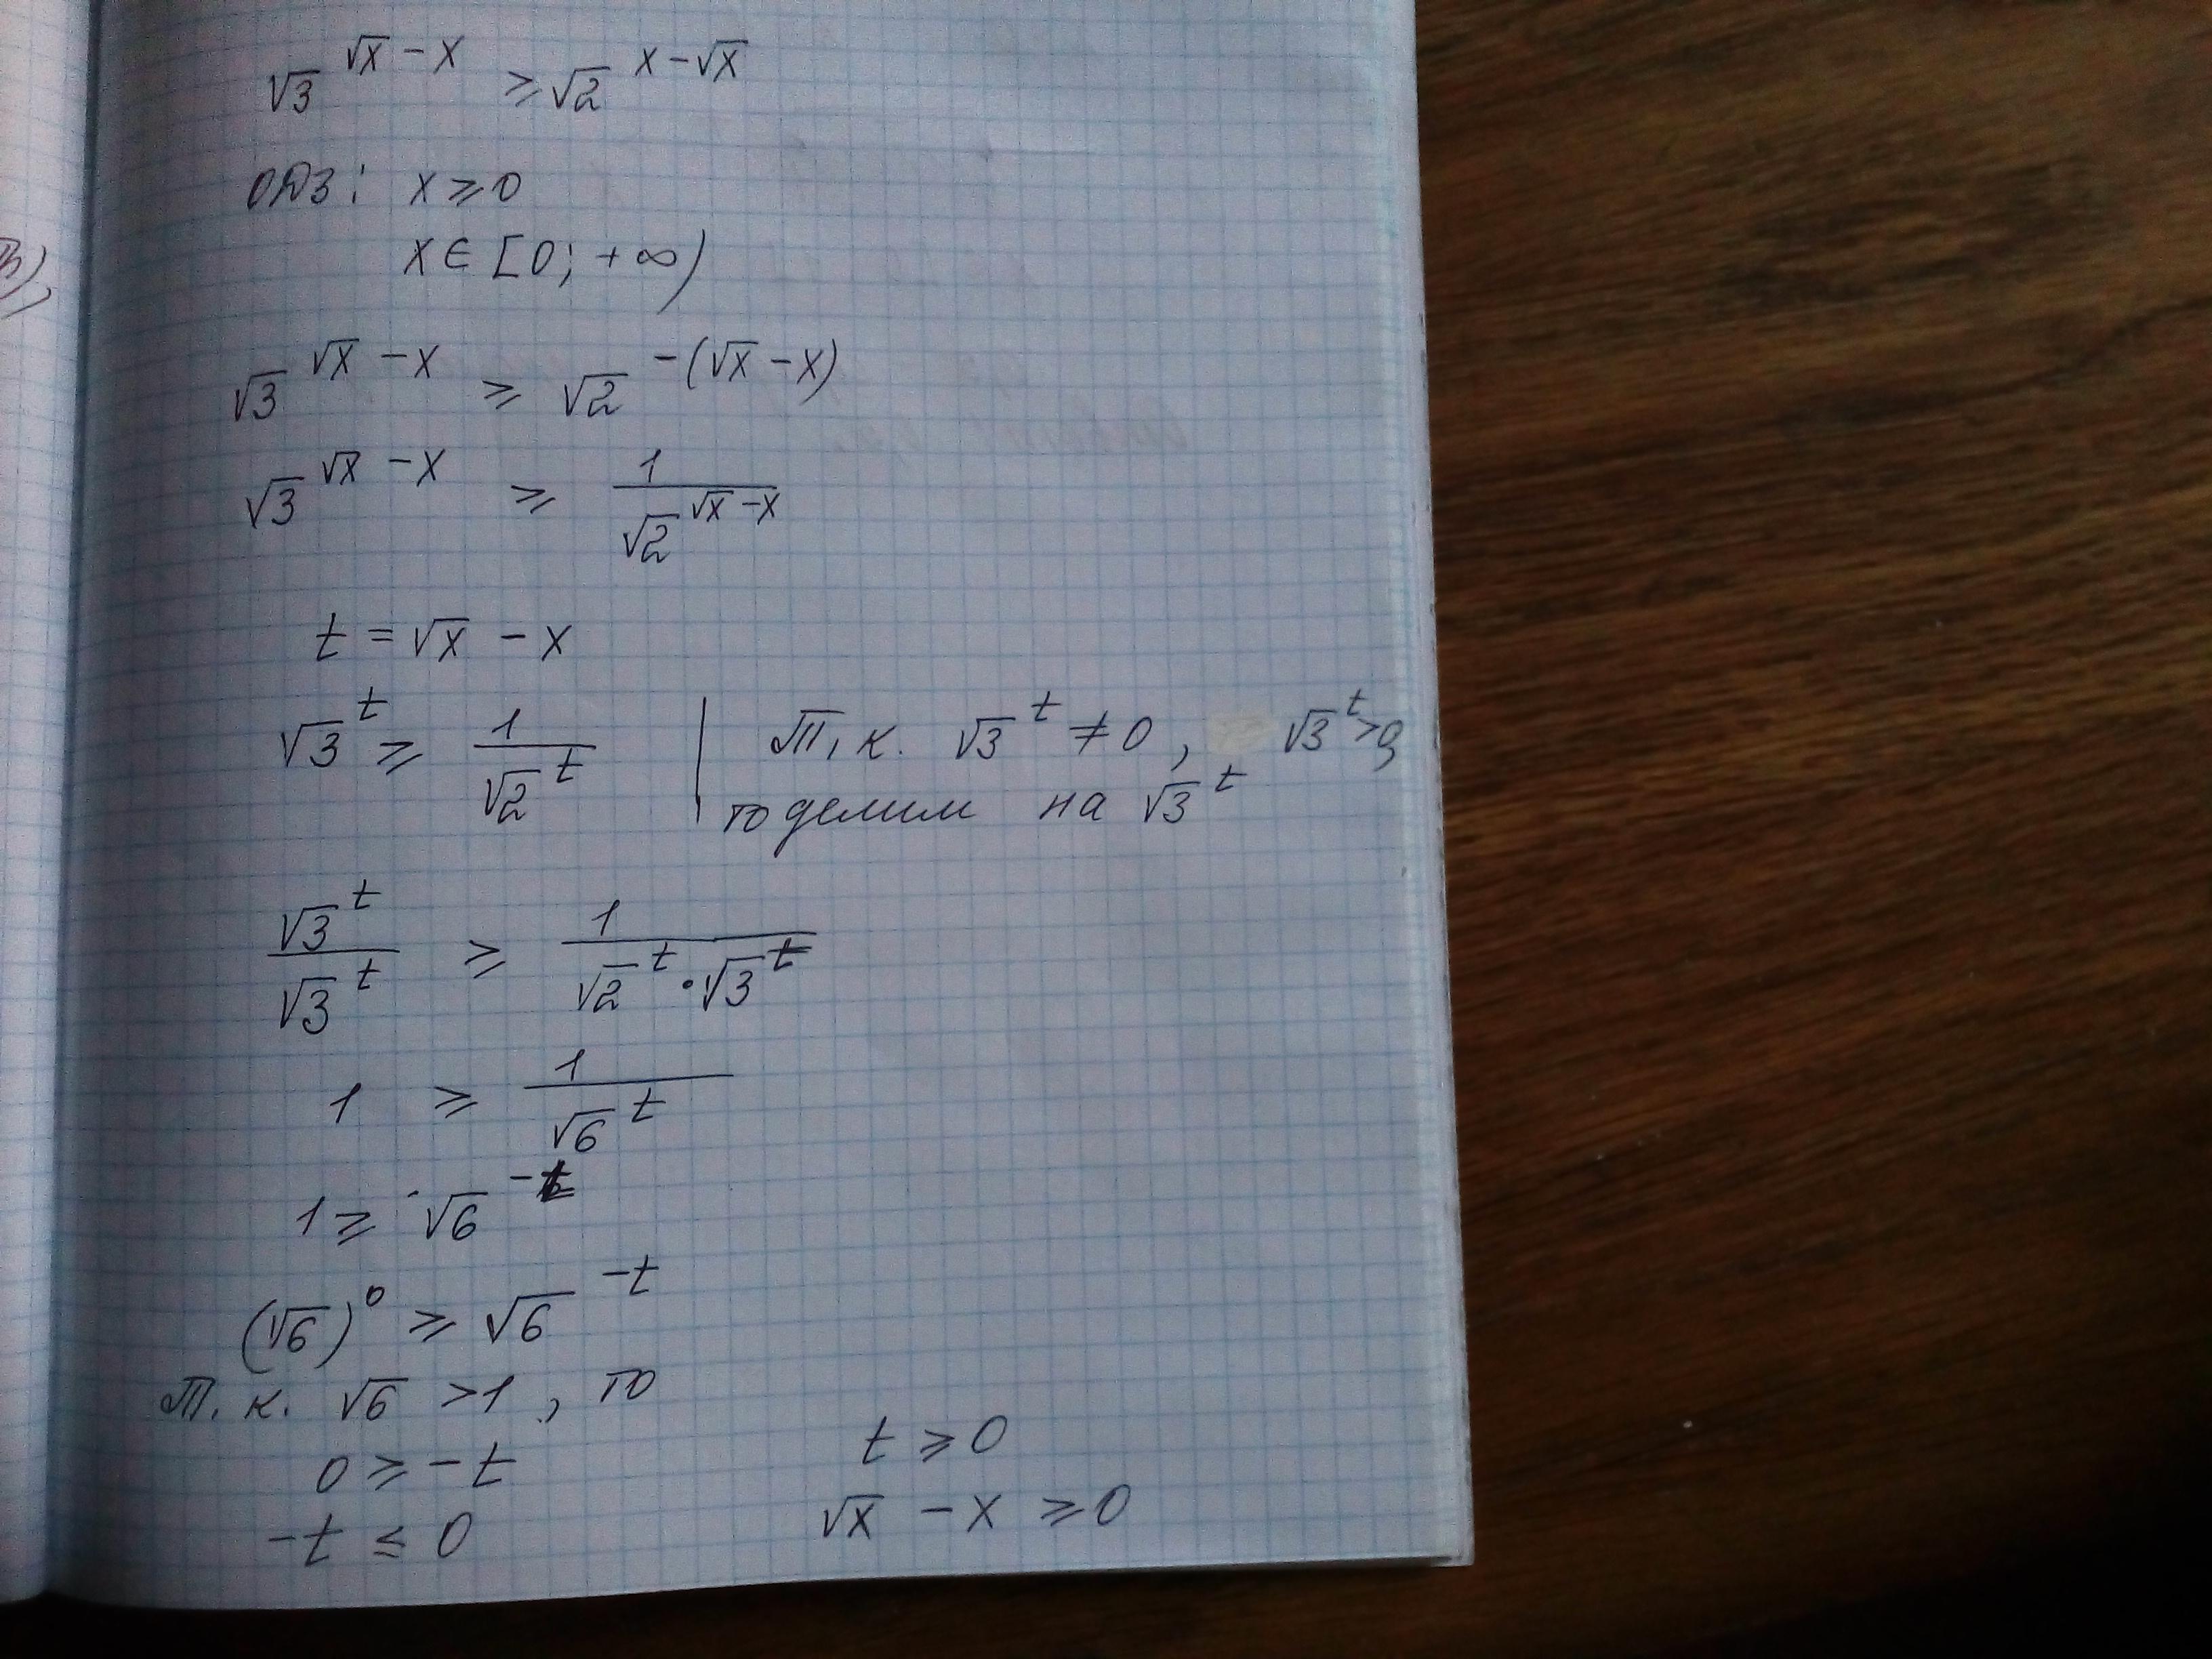 √3^(√x − x) ≥ √2^(x − √x)
ОДЗ: x ≥ 0
x ∈ [0; +∞)
√3^(√x − x) ≥ √2^(−(√x − x))
√3^(√x − x) ≥ 1/√2^(√x − x)
t = √x − x
√3^t ≥ 1/√2^t | Т.к. √3^t ≠ 0, √3^t > 0,
то делим на √3^t
√3^t/√3^t ≥ 1/(√2^t · √3^t)
1 ≥ 1/√6^t
1 ≥ √6^(−t)
(√6)^0 ≥ √6^(−t)
Т.к. √6 > 1, то
0 ≥ −t
−t ≤ 0
t ≥ 0
√x − x ≥ 0